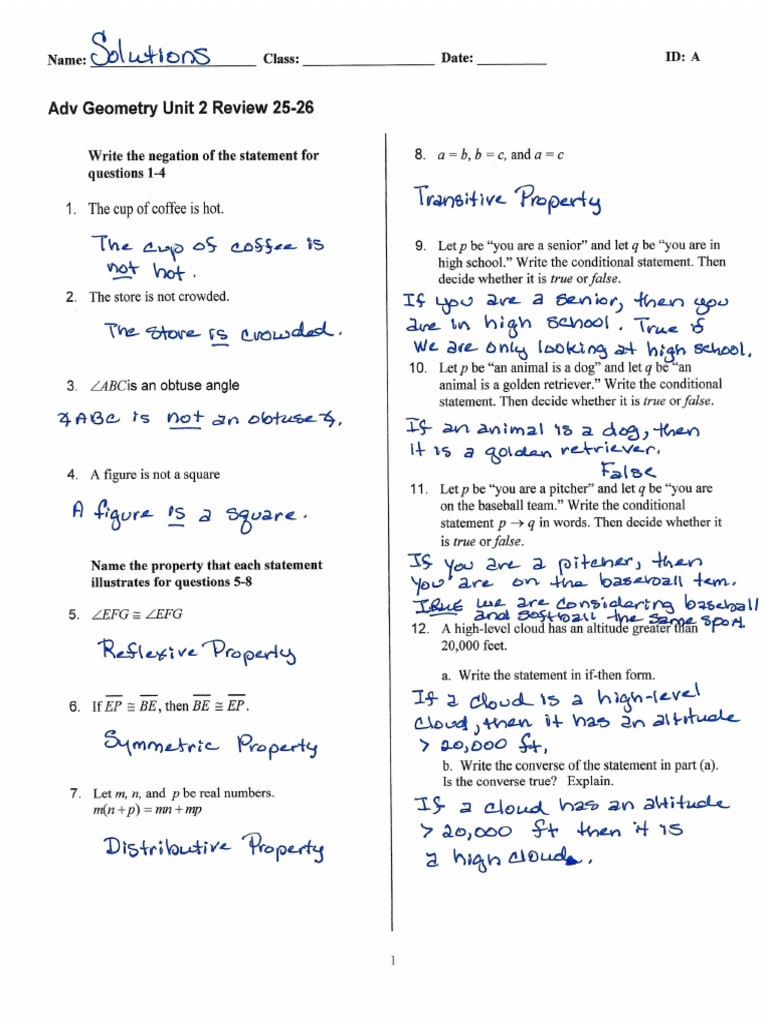 Name: Solutions Class: Date: ID: A
Adv Geometry Unit 2 Review 25-26
Write the negation of the statement for
questions 1-4
1. The cup of coffee is hot.
The cup of coffee is
not hot.
2. The store is not crowded.
The store is crowded.
3. ∠ABC is an obtuse angle
∡ABC is not an obtuse ∡.
4. A figure is not a square
A figure is a square.
Name the property that each statement
illustrates for questions 5-8
5. ∠EFG ≅ ∠EFG
Reflexive Property
6. If EP ≅ BE, then BE ≅ EP.
Symmetric Property
7. Let m, n, and p be real numbers.
m(n + p) = mn + mp
Distributive Property
8. a = b, b = c, and a = c
Transitive Property
9. Let p be “you are a senior” and let q be “you are in
high school.” Write the conditional statement. Then
decide whether it is true or false.
If you are a senior, then you
are in high school. True if
We are only looking at high school.
10. Let p be “an animal is a dog” and let q be “an
animal is a golden retriever.” Write the conditional
statement. Then decide whether it is true or false.
If an animal is a dog, then
it is a golden retriever.
False
11. Let p be “you are a pitcher” and let q be “you are
on the baseball team.” Write the conditional
statement p → q in words. Then decide whether it
is true or false.
If you are a pitcher, then
you are on the baseball tem.
TRUE we are considering baseball
and softball the same sport
12. A high-level cloud has an altitude greater than
20,000 feet.
a. Write the statement in if-then form.
If a cloud is a high-level
cloud, then it has an altitude
> 20,000 ft.
b. Write the converse of the statement in part (a).
Is the converse true? Explain.
If a cloud has an altitude
> 20,000 ft then it is
a high cloud.
1